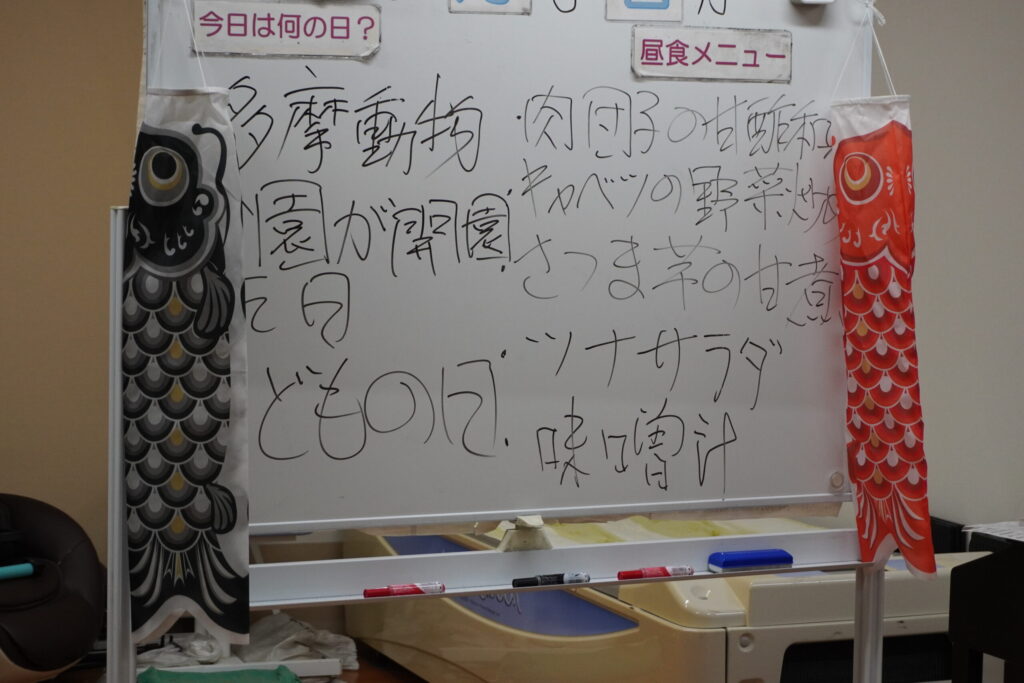 今日は何の日?
多摩動物
園が開園
日
どもの日
昼食メニュー
・肉団子の甘酢和
・キャベツの野菜炒め
・さつま芋の甘煮
・ツナサラダ
・味噌汁